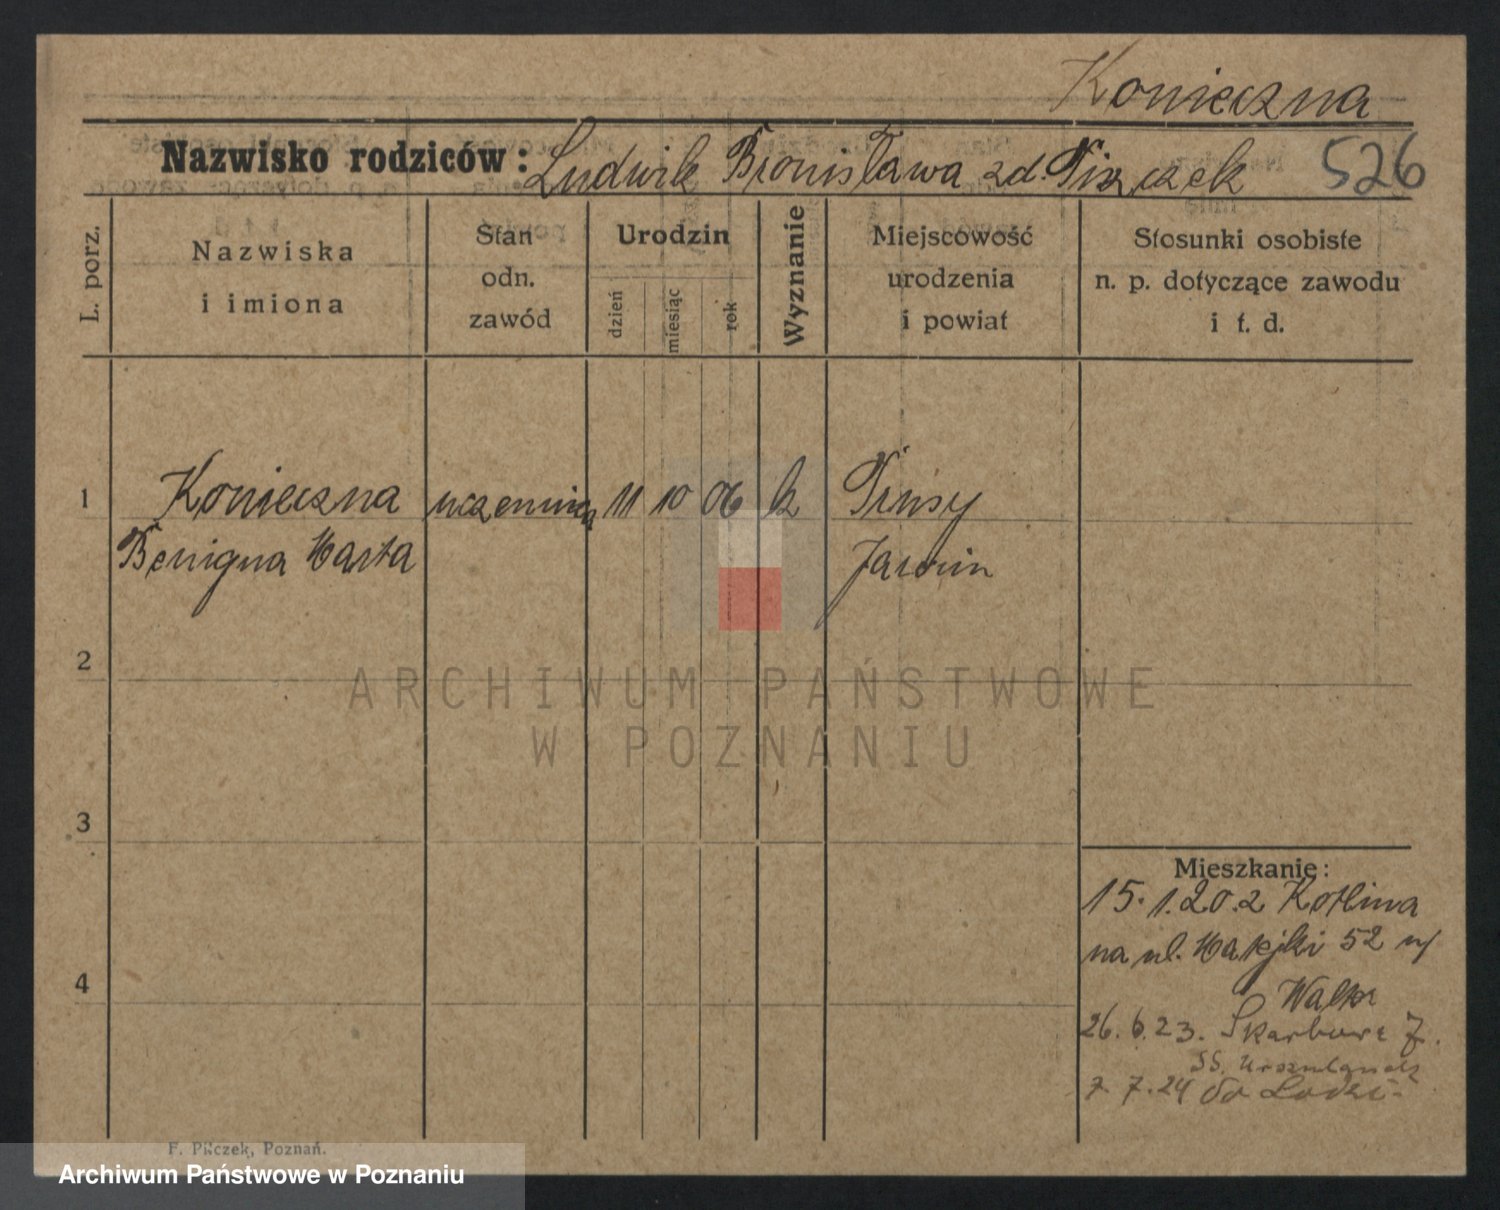 Konieczna
Nazwisko rodziców: Ludwik Bronisława zd.
526
L. porz.
Nazwiska
i imiona
Stan
odn.
zawód
Urodzin
dzień
miesiąc
rok
Wyznanie
Miejscowość
urodzenia
i powiat
Stosunki osobiste
n. p. dotyczące zawodu
i t. d.
1
Konieczna uczennica 11 10 06 k Prusy
Benigna Marta Jarocin
2
3
4
Mieszkanie:
15.1.20. z Kotlina
na ul. 52
26.6.23. Skarbowa 7.
SS. Urszulanek
7.7.24 do Łodzi.
F. Pilczek, Poznań.
ARCHIWUM PAŃSTWOWE
W POZNANIU
Archiwum Państwowe w Poznaniu